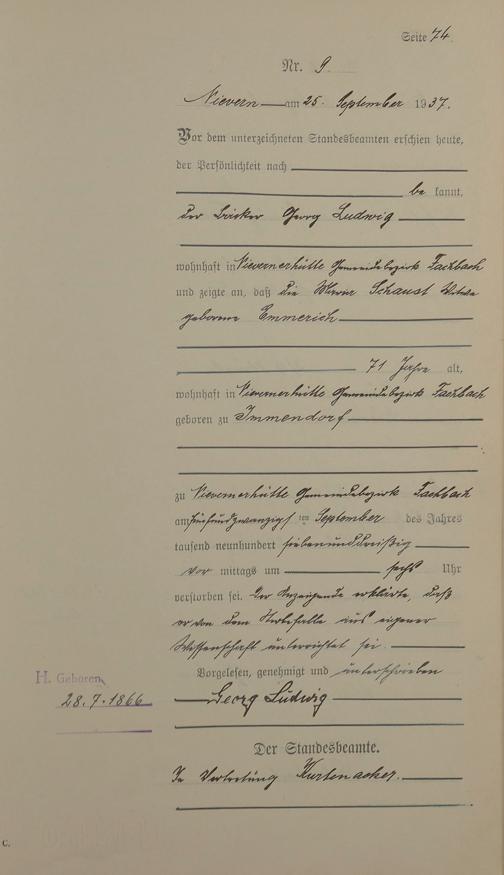 Seite 74.
Nr. 9.
Nievern am 25. September 1937.
Vor dem unterzeichneten Standesbeamten erschien heute,
der Persönlichkeit nach
be kannt,
der Georg Ludwig
wohnhaft in Nievernerhütte Gemeindebezirk Fachbach
und zeigte an, daß die Schaust Witwe
geborene Emmerich
71 Jahre alt,
wohnhaft in Nievernerhütte Gemeindebezirk Fachbach
geboren zu Immendorf
zu Nievernerhütte Gemeindebezirk Fachbach
am fünfundzwanzigsten September des Jahres
tausend neunhundert siebenunddreißig
vor mittags um sechs Uhr
verstorben sei. Der Anzeigende erklärte, daß
er von dem Sterbefalle aus eigener
Wissenschaft unterrichtet sei.
Vorgelesen, genehmigt und unterschrieben
H. Geboren
28.7.1866
Georg Ludwig
Der Standesbeamte.
In Vertretung Kurtenacker.
C.